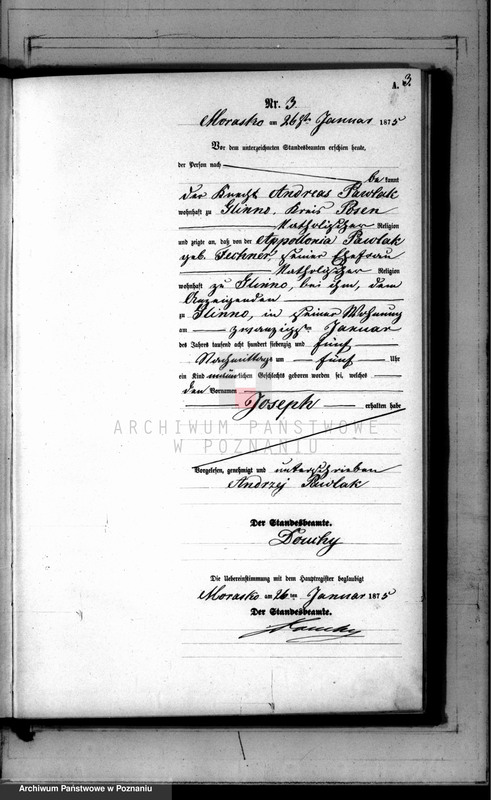 A. 3.
Nr. 3
Morasko am 26ten Januar 1875
Vor dem unterzeichneten Standesbeamten erschien heute,
der Person nach
be kannt
der Knecht Andreas Pawlak
wohnhaft zu Glinno, Kreis Posen
Katholischer Religion
und zeigte an, daß von der Appollonia Pawlak
geb. Fechner, seiner Ehefrau
Katholischer Religion
wohnhaft zu Glinno, bei ihm, dem
Anzeigenden
zu Glinno, in seiner Wohnung
am zwanzigsten Januar
des Jahres tausend acht hundert siebenzig und fünf
Nachmittags um fünf Uhr
ein Kind männlichen Geschlechts geboren worden sei, welches
den Vornamen
Joseph erhalten habe
ARCHIWUM PAŃSTWOWE
W POZNANIU
Vorgelesen, genehmigt und unterschrieben
Andrzej Pawlak
Der Standesbeamte.
Die Uebereinstimmung mit dem Hauptregister beglaubigt
Morasko am 26 ten Januar 1875
Der Standesbeamte.
Archiwum Państwowe w Poznaniu